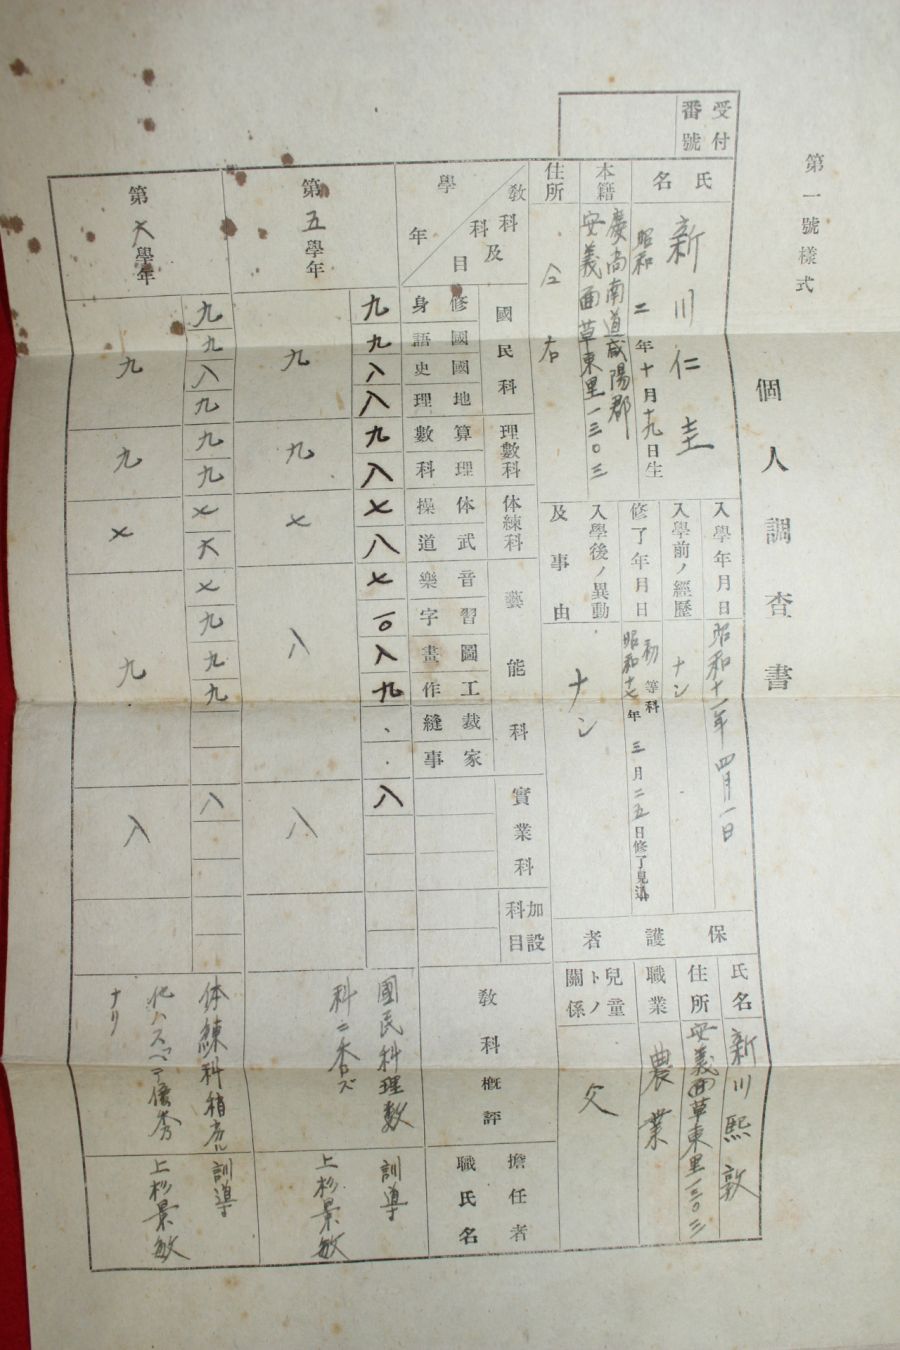 第一號樣式
個人調査書
受付番號
氏名
新川仁圭
昭和二年十月十九日生
本籍
慶尚南道咸陽郡
安義面草東里一三〇三
住所
仝右
入學年月日
昭和十一年四月一日
入學前ノ經歷
ナシ
修了年月日
初等科
昭和十七年三月二五日修了見込
入學後ノ異動
及事由
ナシ
保護者
氏名
新川熙敦
住所
安義面草東里一三〇三
職業
農業
兒童トノ關係
父
教科及科目
學年
國民科
修身
國語
國史
地理
理數科
算數
理科
体練科
体操
武道
藝能科
音樂
習字
圖畫
工作
裁縫
家事
實業科
加設科目
教科概評
擔任者
職氏名
第五學年
九
九
八
八
九
八
七
八
七
一〇
八
九
八
九
九
七
八
八
國民科理數
科ニ秀ヅ
訓導
上杉景敏
第六學年
九
九
八
九
九
九
七
六
七
九
九
九
八
九
九
七
九
八
体練科稍劣ル
他ハスベテ優秀
ナリ
訓導
上杉景敏